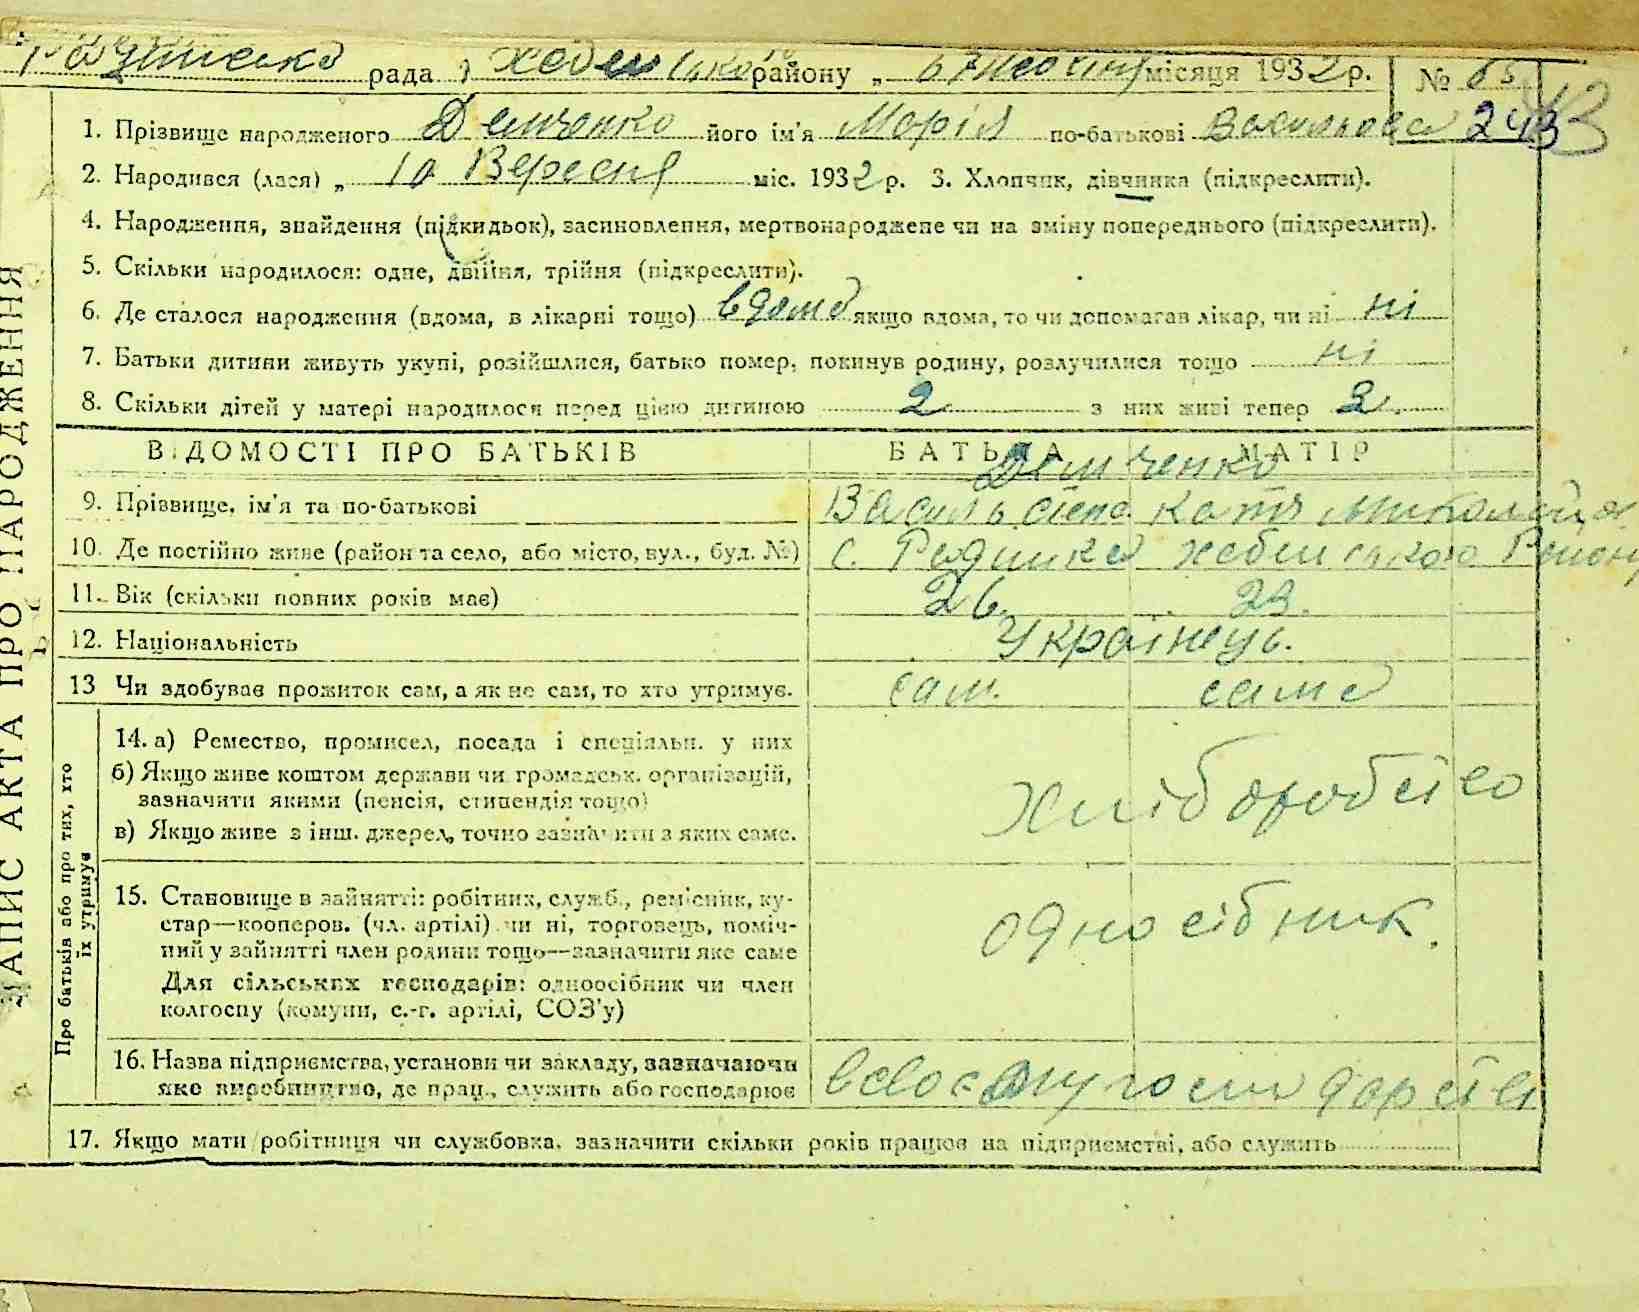 рада Хабенського району „ 6 Жовтня місяця 1932 р. № 65
1. Прізвище народженого Демченко його ім'я Марія по-батькові Васильова 243
2. Народився (лася) „ 10 Вересня міс. 1932 р. 3. Хлопчик, дівчинка (підкреслити).
4. Народження, знайдення (підкидьок), засиновлення, мертвонароджене чи на зміну попереднього (підкреслити).
5. Скільки народилося: одне, двійня, трійня (підкреслити).
6. Де сталося народження (вдома, в лікарні тощо) вдома якщо вдома, то чи допомагав лікар, чи ні ні
7. Батьки дитини живуть укупі, розійшлися, батько помер, покинув родину, розлучилися тощо ні
8. Скільки дітей у матері народилося перед цією дитиною 2 з них живі тепер 2
ВІДОМОСТІ ПРО БАТЬКІВ БАТЬКА МАТІР
Демченко
9. Прізвище, ім'я та по-батькові Василь Степ. Катя Миколайов
10. Де постійно живе (район та село, або місто, вул., буд. №) с. Радинка Хабенського Району
11. Вік (скільки повних років має) 26. 23.
12. Національність Українець.
13 Чи здобуває прожиток сам, а як не сам, то хто утримує. сам. сама
14. а) Ремество, промисел, посада і спеціяльн. у них
б) Якщо живе коштом держави чи громадськ. організацій,
зазначити якими (пенсія, стипендія тощо)
Хліборобство
в) Якщо живе з інш. джерел, точно зазначити з яких саме.
15. Становище в зайнятті: робітник, служб., ремісник, ку-
стар—кооперов. (чл. артілі) чи ні, торговець, поміч-
ний у зайнятті член родини тощо—зазначити яке саме
Для сільських господарів: одноосібник чи член
колгоспу (комуни, с.-г. артілі, СОЗ'у)
односібник.
16. Назва підприємства, установи чи закладу, зазначаючи
яке виробництво, де прац., служить або господарює
в своєму господарстві
17. Якщо мати робітниця чи службовка, зазначити скільки років працює на підприємстві, або служить
ЗАПИС АКТА ПРО НАРОДЖЕННЯ
Про батьків або про тих, хто
їх утримує